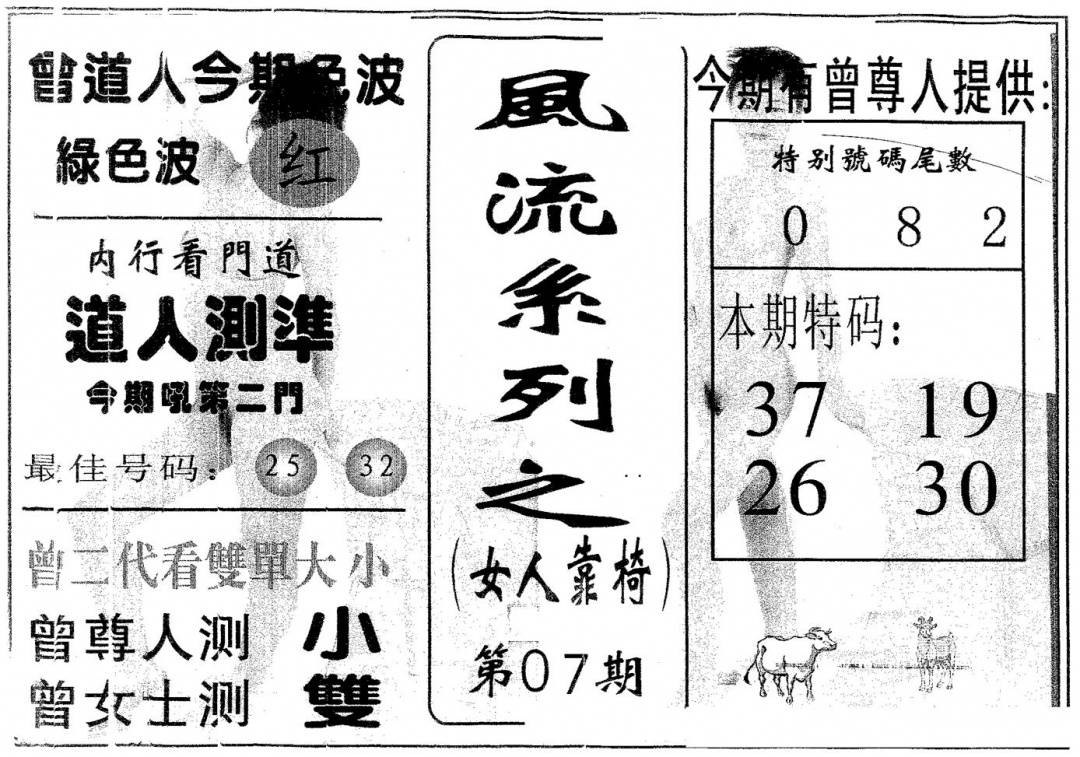 曾道人今期色波
綠色波 红
内行看門道
道人測準
今期吼第二門
最佳号码: 25 32
曾二代看雙單大小
曾尊人测 小
曾女士测 雙
風流系列之
(女人靠椅)
第07期
今期有曾尊人提供:
特别號碼尾數
0 8 2
本期特码:
37 19
26 30